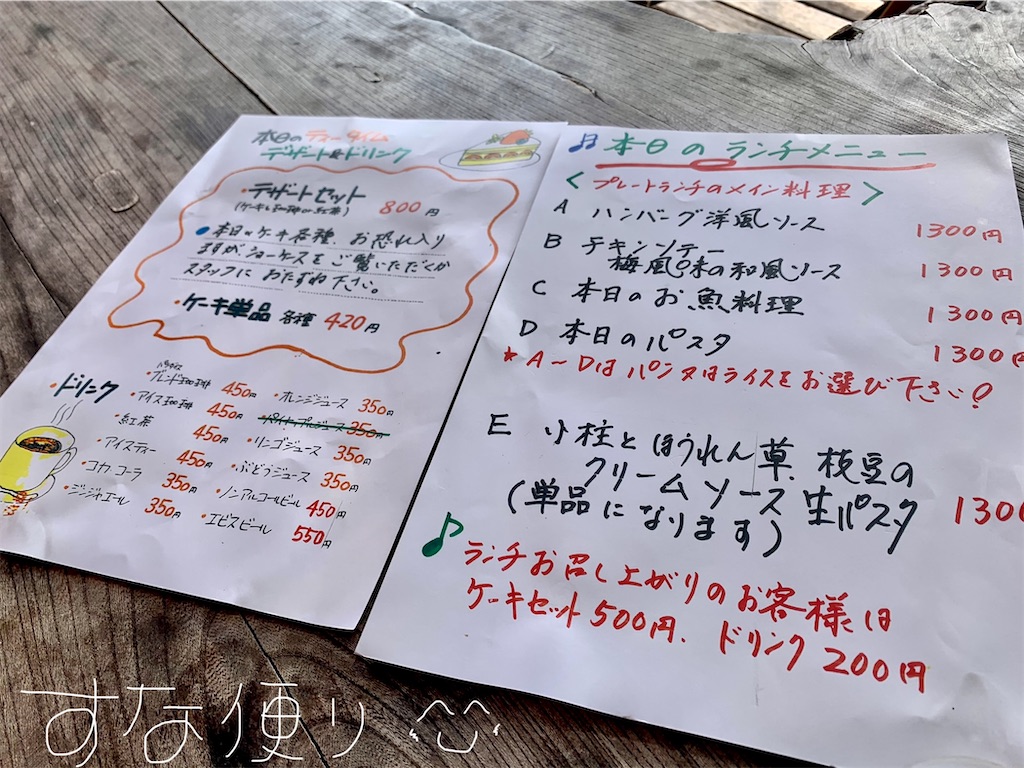 本日のティータイム
デザート&ドリンク
・デザートセット
(ケーキと珈琲or紅茶) 800円
●本日のケーキ各種、お恐れ入り
ますが、ショーケースをご覧いただくか
スタッフにおたずね下さい。
・ケーキ単品 各種 420円
・ドリンク
・ブレンド珈琲 450円
・アイス珈琲 450円
・紅茶 450円
・アイスティー 450円
・コカコーラ 350円
・ジンジャエール 350円
・オレンジジュース 350円
・パイナップルジュース 350円
・リンゴジュース 350円
・ぶどうジュース 350円
・ノンアルコールビール 450円
・エビスビール 550円
♬ 本日のランチメニュー
<プレートランチのメイン料理>
A ハンバーグ洋風ソース 1300円
B チキンソテー
梅風味の和風ソース 1300円
C 本日のお魚料理 1300円
D 本日のパスタ 1300円
*A~Dはパンタはライスをお選び下さい!
E 小柱とほうれん草、枝豆の
クリームソース生パスタ 1300
(単品になります)
♪ランチお召し上がりのお客様は
ケーキセット500円、ドリンク200円
すな便り